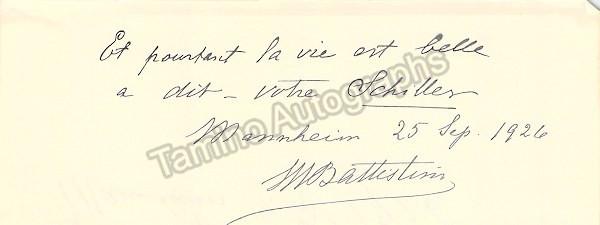 Et pourtant la vie est belle
a dit – votre Schiller
Mannheim 25 Sep. 1926
MBattistini
Tamino Autographs